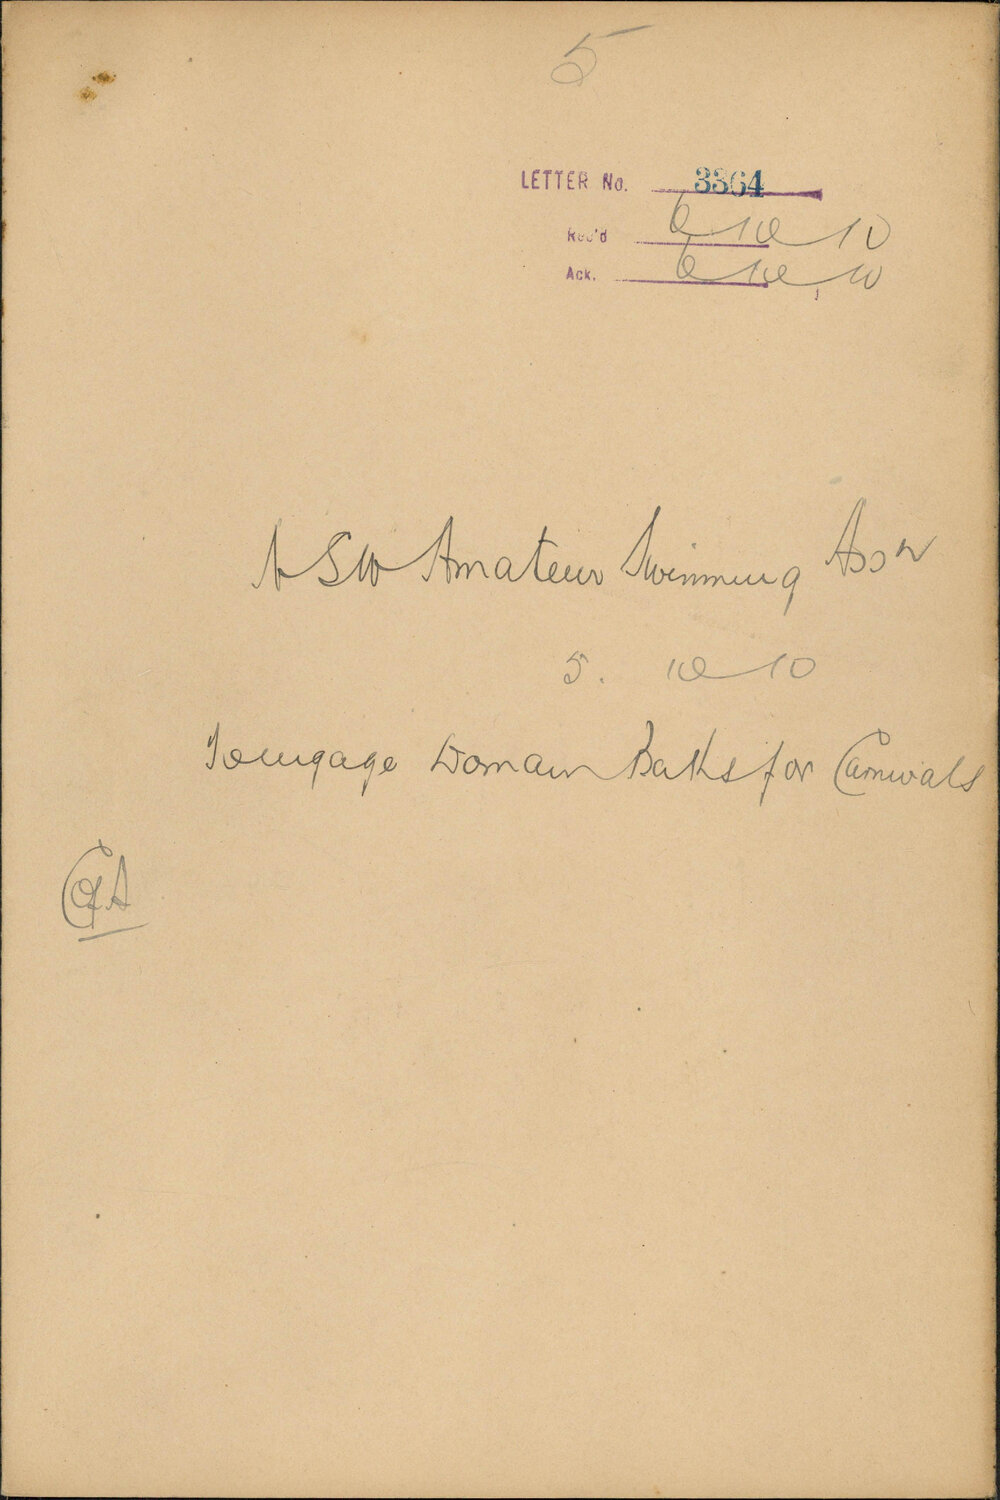 5
LETTER No. 3364
Rec'd 6 10 10
Ack. 6 10 10
NSW Amateur Swimming Assn
5. 10 10
To engage Domain Baths for Carnivals
C of A